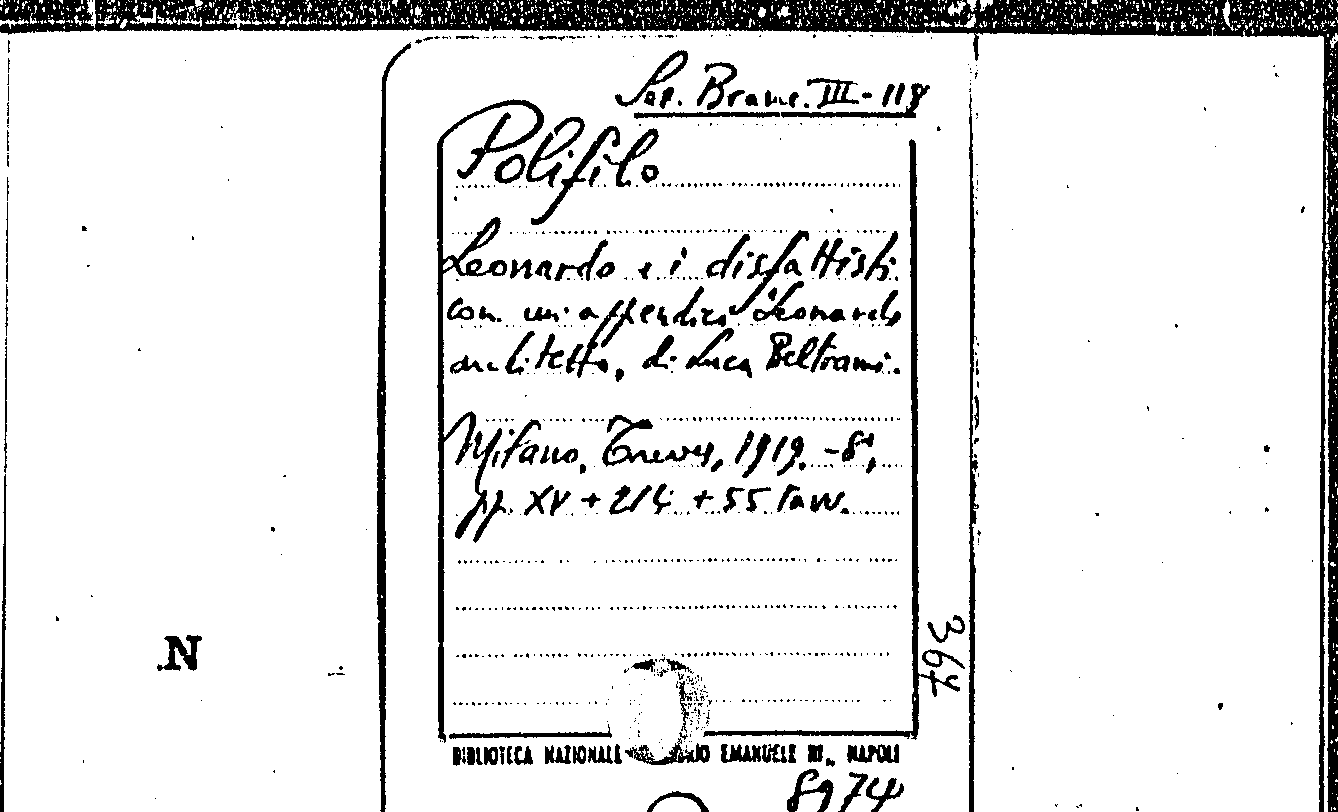 Sal. Branc. III - 118
Polifilo
Leonardo e i disfattisti
con un'appendice: Leonardo
architetto, di Luca Beltrami.
Milano, Treves, 1919. - 8°,
pp. XV + 214 + 55 tavv.
364
N
BIBLIOTECA NAZIONALE EMANUELE III., NAPOLI
8974